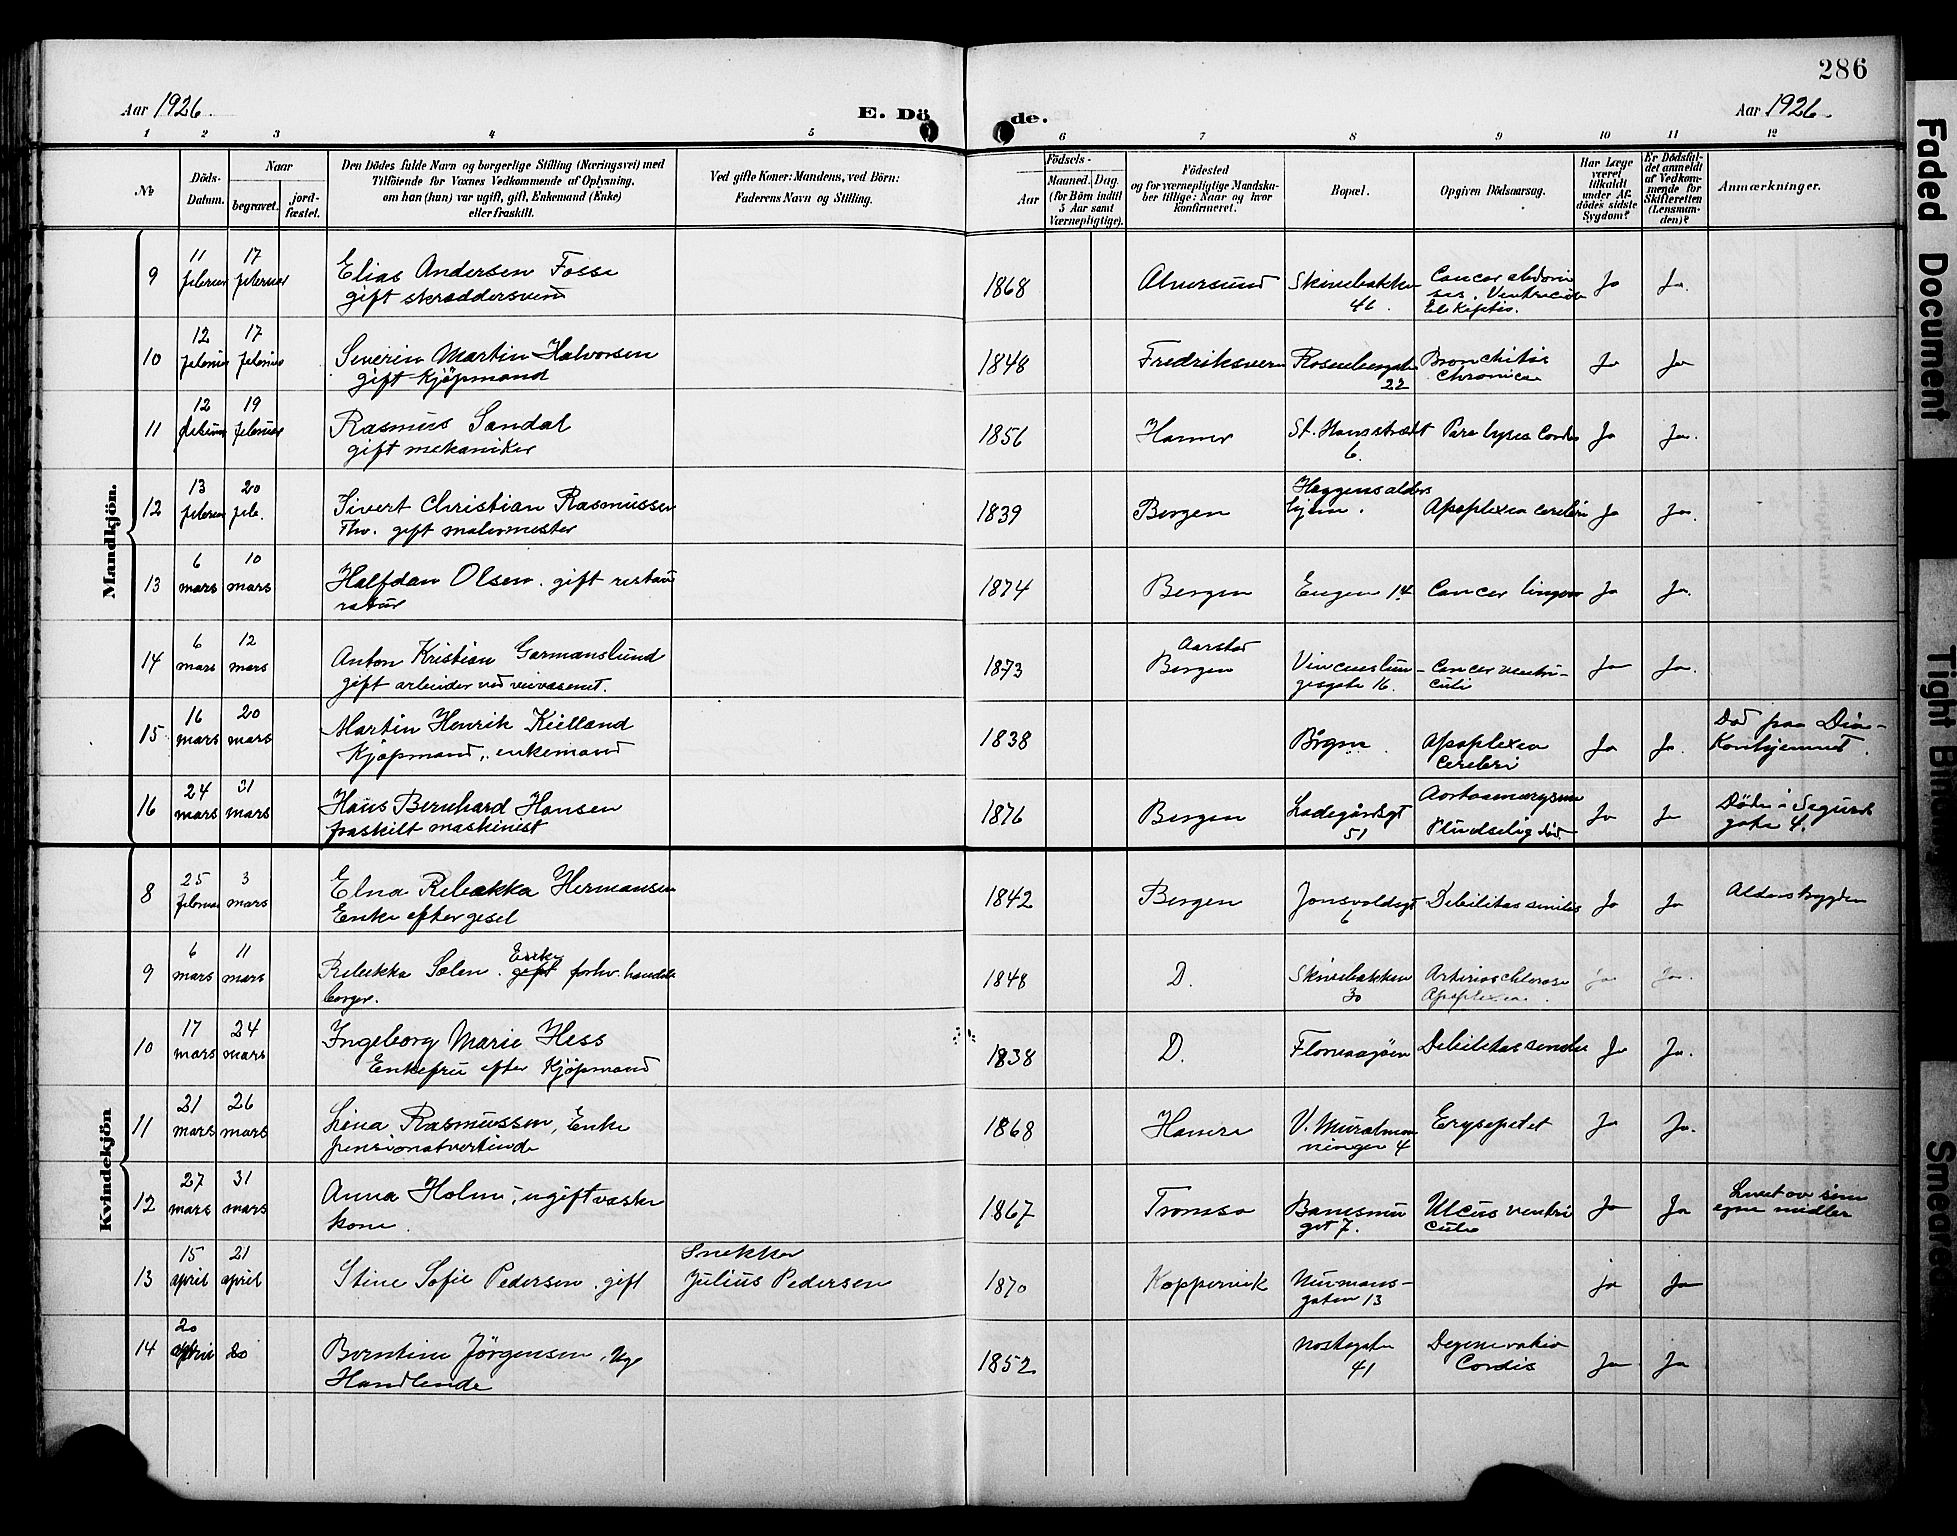 286
Aar 1926
E. Dö
de.
Aar 1926.
1 2 3 4 5 6 7 8 9 10 11 12
No
Döds-
Datum.
Naar
begravet.
jord-
fæstet.
Den Dödes fulde Navn og borgerlige Stilling (Næringsvei) med
Tilföiende for Voxnes Vedkommende af Oplysning,
om han (hun) var ugift, gift, Enkemand (Enke)
eller fraskilt.
Ved gifte Koner: Mandens, ved Börn:
Faderens Navn og Stilling.
Födsels-
Aar
Maaned. Dag.
(for Börn indtil
5 Aar samt
Værnepligtige).
Födested
og for værnepligtige Mandska-
ber tillige: Naar og hvor
konfirmeret.
Bopæl.
Opgiven Dödsaarsag.
Har Læge
været
tilkaldt
under Af-
dödes sidste
Sygdom?
Er Dödsfal-
det anmeldt
af Vedkom-
mende for
Skifteretten
(Lensman-
den)?
Anmærkninger.
Mandkjön.
9
11
februar
17
februar
Elias Andersen Fosse
gift skræddersvend
1868
Alversund
Skivebakken
46.
Cancer
Ja
Ja.
10
12
februar
17
februar
Severin Martin Halvorsen
gift Kjøpmand
1848
Fredriksvern
Rosenbergsgaten
22
Bronchitis
Chronica
Ja
Ja
11
12
februar
19
februar
Rasmus Sandal
gift mekaniker
1856
Hamer
St. Hansstrædet
6.
Paralysea Cordis
Ja
Ja.
12
13
februar
20
feb.
Sivert Christian Rasmussen
Fhv. gift malermester
1839
Bergen
Haggens alders
hjem.
Apoplexia cerebri
Ja
Ja.
13
6
mars
10
mars
Halfdan Olsen. gift restau
ratør
1874
Bergen
Engen 14
Cancer linguae
Ja
Ja.
14
6
mars
12
mars
Anton Kristian Garmanslund
gift arbeider ved veivæsenet.
1873
Aarstad
Bergen
Vincenslun-
gesgate 16.
Cancer ventri-
culi
Ja
Ja.
15
16
mars
20
mars
Martin Henrik Kielland
Kjøpmand, enkemand
1838
Apoplexia
Cerebri
Ja
Ja.
Død paa Dia-
konhjemmet.
16
24
mars
31
mars
Hans Bernhard Hansen
fraskilt maskinist
1876
Bergen
Ladegårdsgt
51
Aortaaneurysme
Pludselig død
Ja
Ja
Døde i Sigurds
gate 4.
Kvindekjön
8
25
februar
3
mars
Elna Rebekka Hermansen
Enke efter gesel
1842
Bergen
Jonsvoldsgt
6
Debilitas senilis
Ja
Ja
Alderstrygden
9
6
mars
11
mars
Rebekka Solen. Enke
gift forhv. handels
borger.
1848
D.
Skivebakken
30
Arterioschlerose
Apoplexia.
Ja
Ja.
10
17
mars
24
mars
Ingeborg Marie Hess
Enkefru efter Kjøpmand
1838
D.
Florvaagøen
Debilitas senilis
Ja
Ja.
11
21
mars
26
mars
Lina Rasmussen, Enke
pensionatvertinde
1868
Hamre
V. Muralman
ningen 4
Erysepelet
Ja
Ja.
12
27
mars
31
mars
Anna Holm, ugift vaske
kone.
1867
Tromsø
gt 7.
Ulcus ventri
culi
Ja
Ja
Levet av sine
egne midler
13
15
april
21
april
Stine Sofie Pedersen, gift
Snekker
Julius Pedersen
1870
Koppervik
Nürmans-
gaten 13
ja
Ja
14
20
april
20
Berntine Jørgensen, Ug.
Handlende
1852
Nostegaten
41
Degeneratio
Cordis
Ja
Ja
Faded Document
Tight Binding
Smeared